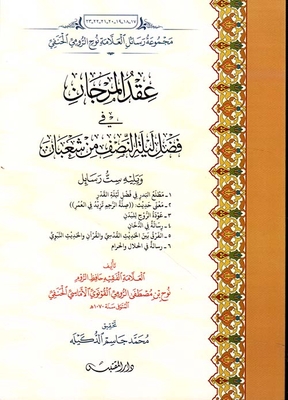 ١٧-١٨-١٩-٢٠-٢١-٢٢-٢٣
مَجْمُوعَة رَسَائِل العَلَّامَةِ نُوح الرُّومِيِّ الحَنَفِيِّ
عِقْدُ المَرْجَانِ
فِي
فَضْلِ لَيْلَةِ النِّصْفِ مِنْ شَعْبَانَ
وَيَلِيهِ سِتُّ رَسَائِل
١ - مَطْلَعُ البَدْرِ فِي فَضْلِ لَيْلَةِ القَدْرِ
٢ - مَعْنَى حَدِيثِ ((صِلَةُ الرَّحِمِ تَزِيْدُ فِي العُمُرِ))
٣ - عَوْدَةُ الرُّوْحِ لِلْبَدَنِ
٤ - رِسَالَةٌ فِي الدُّخَانِ
٥ - الفَرْقُ بَيْنَ الحَدِيْثِ القُدْسِيِّ وَالقُرْآنِ وَالحَدِيْثِ النَّبَوِيِّ
٦ - رِسَالَةٌ فِي الحَلَالِ وَالحَرَامِ
تَأْلِيفُ
العَلَّامَةِ الفَقِيْهِ حَافِظِ الرُّوْمِ
نُوح بْنِ مُصْطَفَى الرُّومِيِّ القُونَوِيِّ الأَمَاسِيِّ الحَنَفِيِّ
المُتَوَفَّى سَنَة ١٠٧٠هـ
تَحْقِيق
مُحَمَّد جَاسِم الدُّكَيْلَه
دَارُ المُقْتَبَس